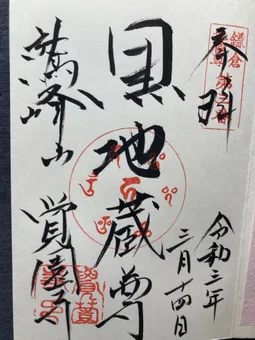 鎌倉
奉拝
令和三年
三月十四日
黒地蔵尊
鷲峰山 覚園寺